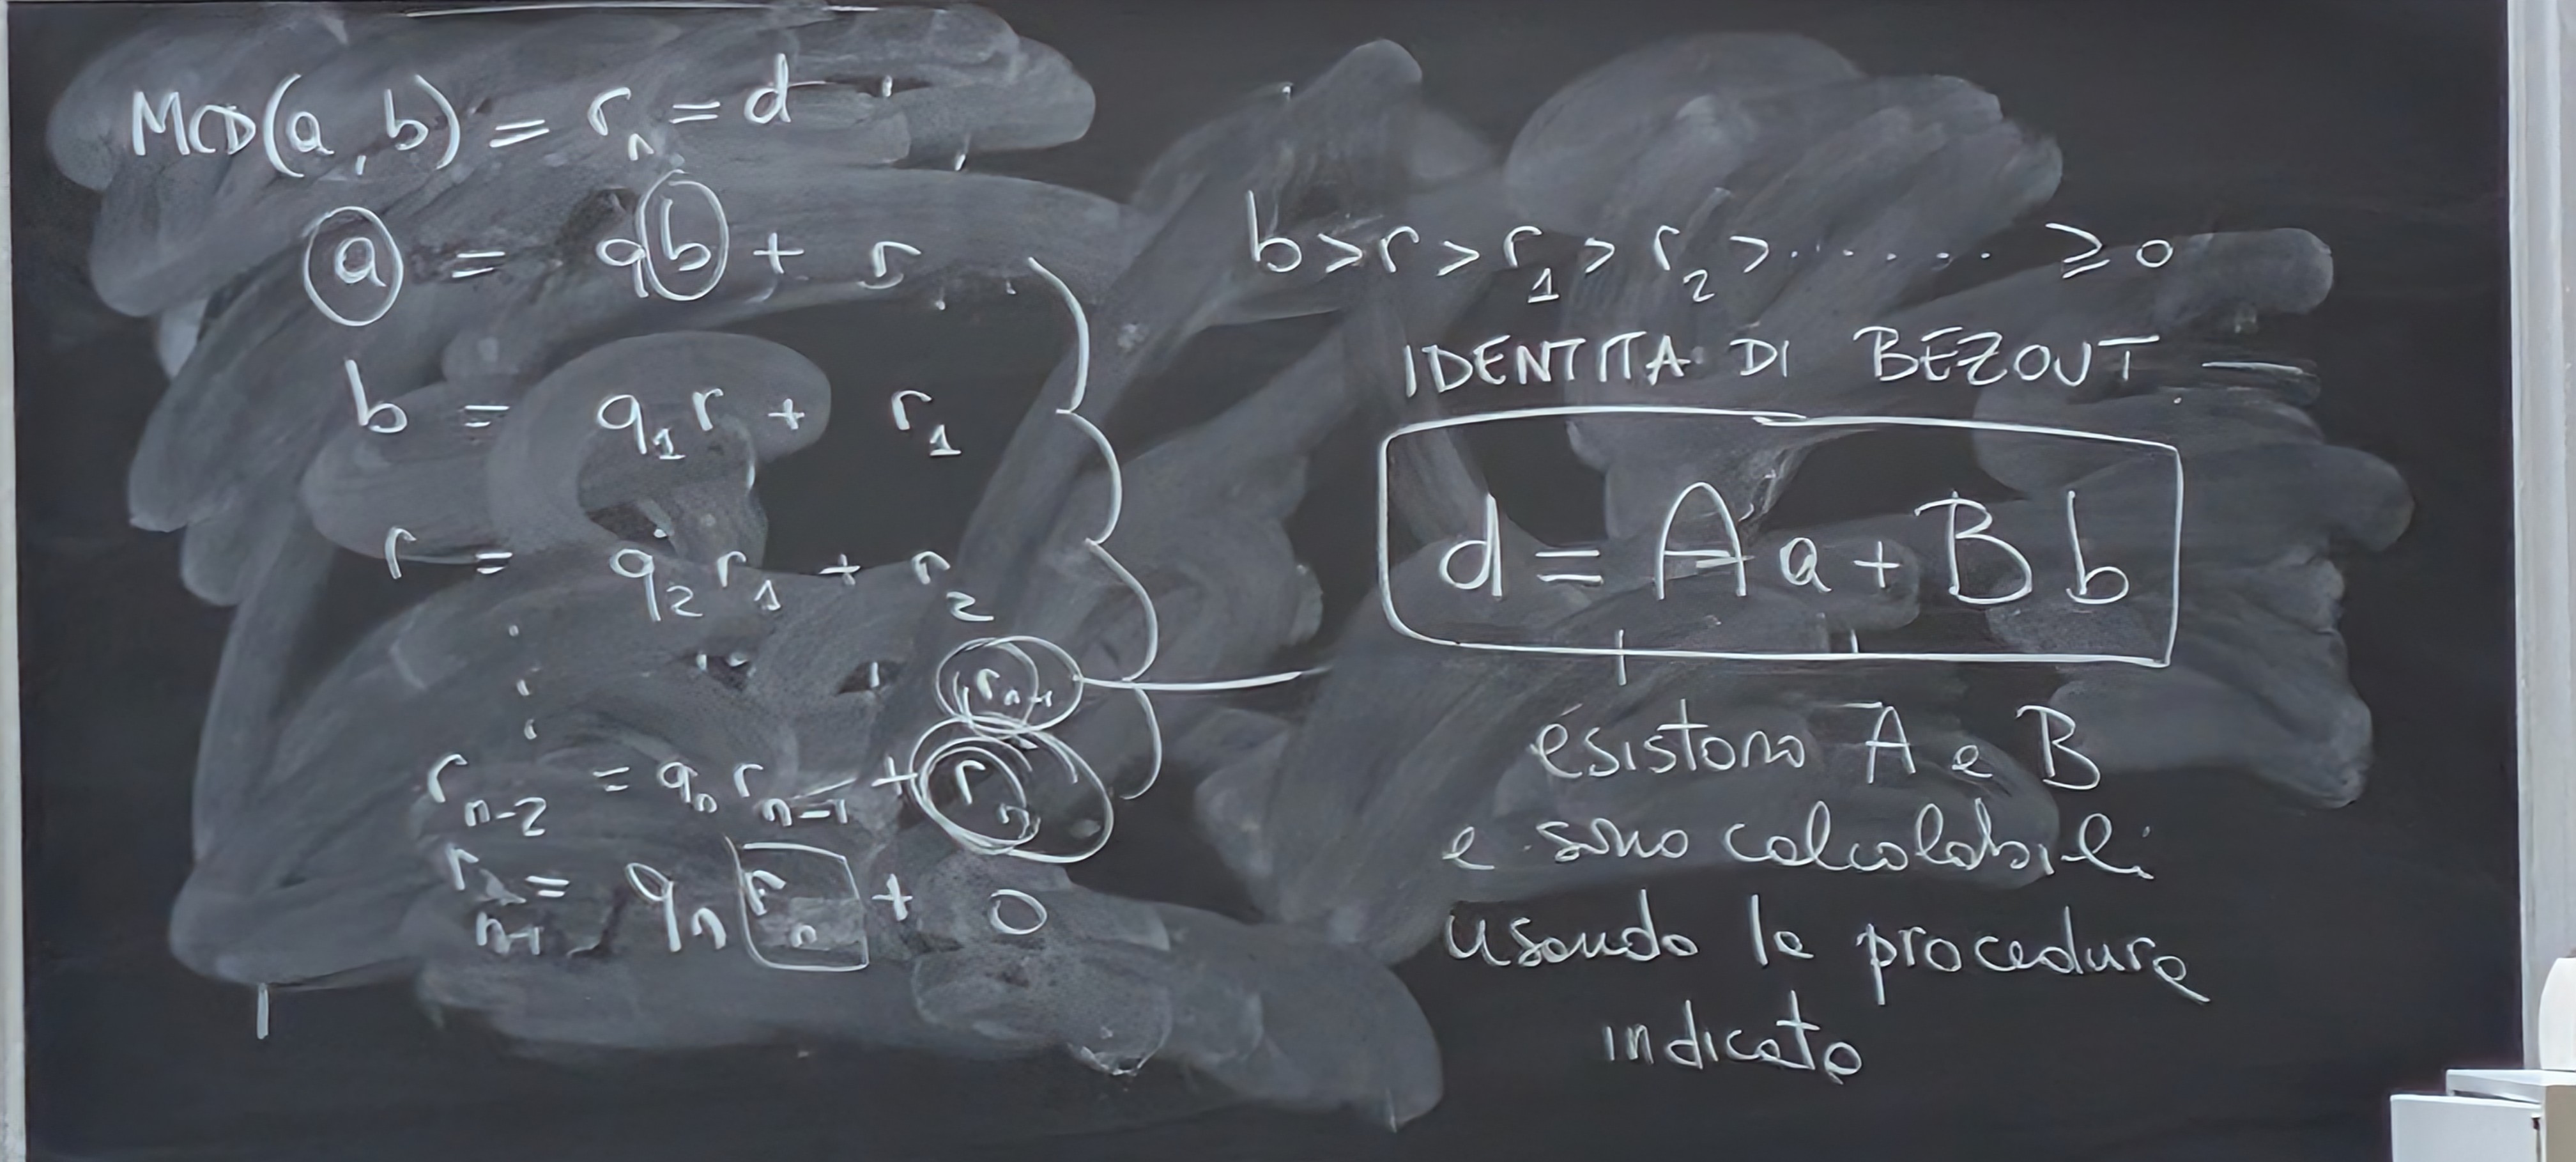 MCD(a, b) = rₙ = d
a = qb + r
b = q₁r + r₁
r = q₂r₁ + r₂
⋮
rₙ₋₁
rₙ₋₂ = qₙrₙ₋₁ + rₙ
rₙ₋₁ = qₙrₙ + 0
b > r > r₁ > r₂ > ...... ≥ 0
IDENTITA DI BEZOUT
d = Aa + Bb
esistono A e B
e sono calcolabili
usando la procedura
indicata